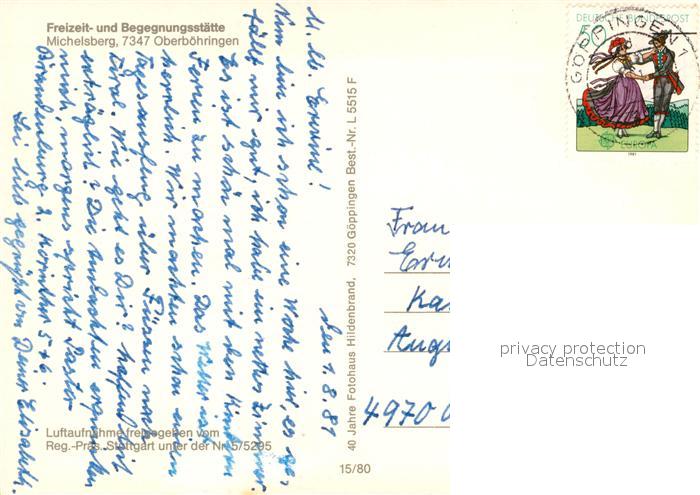 Freizeit- und Begegnungsstätte
Michelsberg, 7347 Oberböhringen
den 1.8.81
M. lb. Erwine!
Nun bin ich schon eine Woche hier, es ge-
fällt mir gut, ich habe ein nettes Zimmer.
Es ist schön mal mit den Kindern
Ferien zu machen. Das Wetter ist
herrlich. Wir machten schon einen
Tagesausflug über Füssen nach
Tirol. Wie geht es Dir? hoffentlich
erträglich? Die Andachten erquicken
mich, morgens spricht Pastor
Brandenburg 2. Korinther 5 + 6.
Sei lieb gegrüßt von Deiner Elisabeth.
Luftaufnahme freigegeben vom
Reg.-Präs. Stuttgart unter der Nr. 5/5295
40 Jahre Fotohaus Hildenbrand, 7320 Göppingen Best.-Nr. L 5515 F
15/80
DEUTSCHE BUNDESPOST
50
GÖPPINGEN 1
EUROPA
1981
Frau
4970
privacy protection
Datenschutz